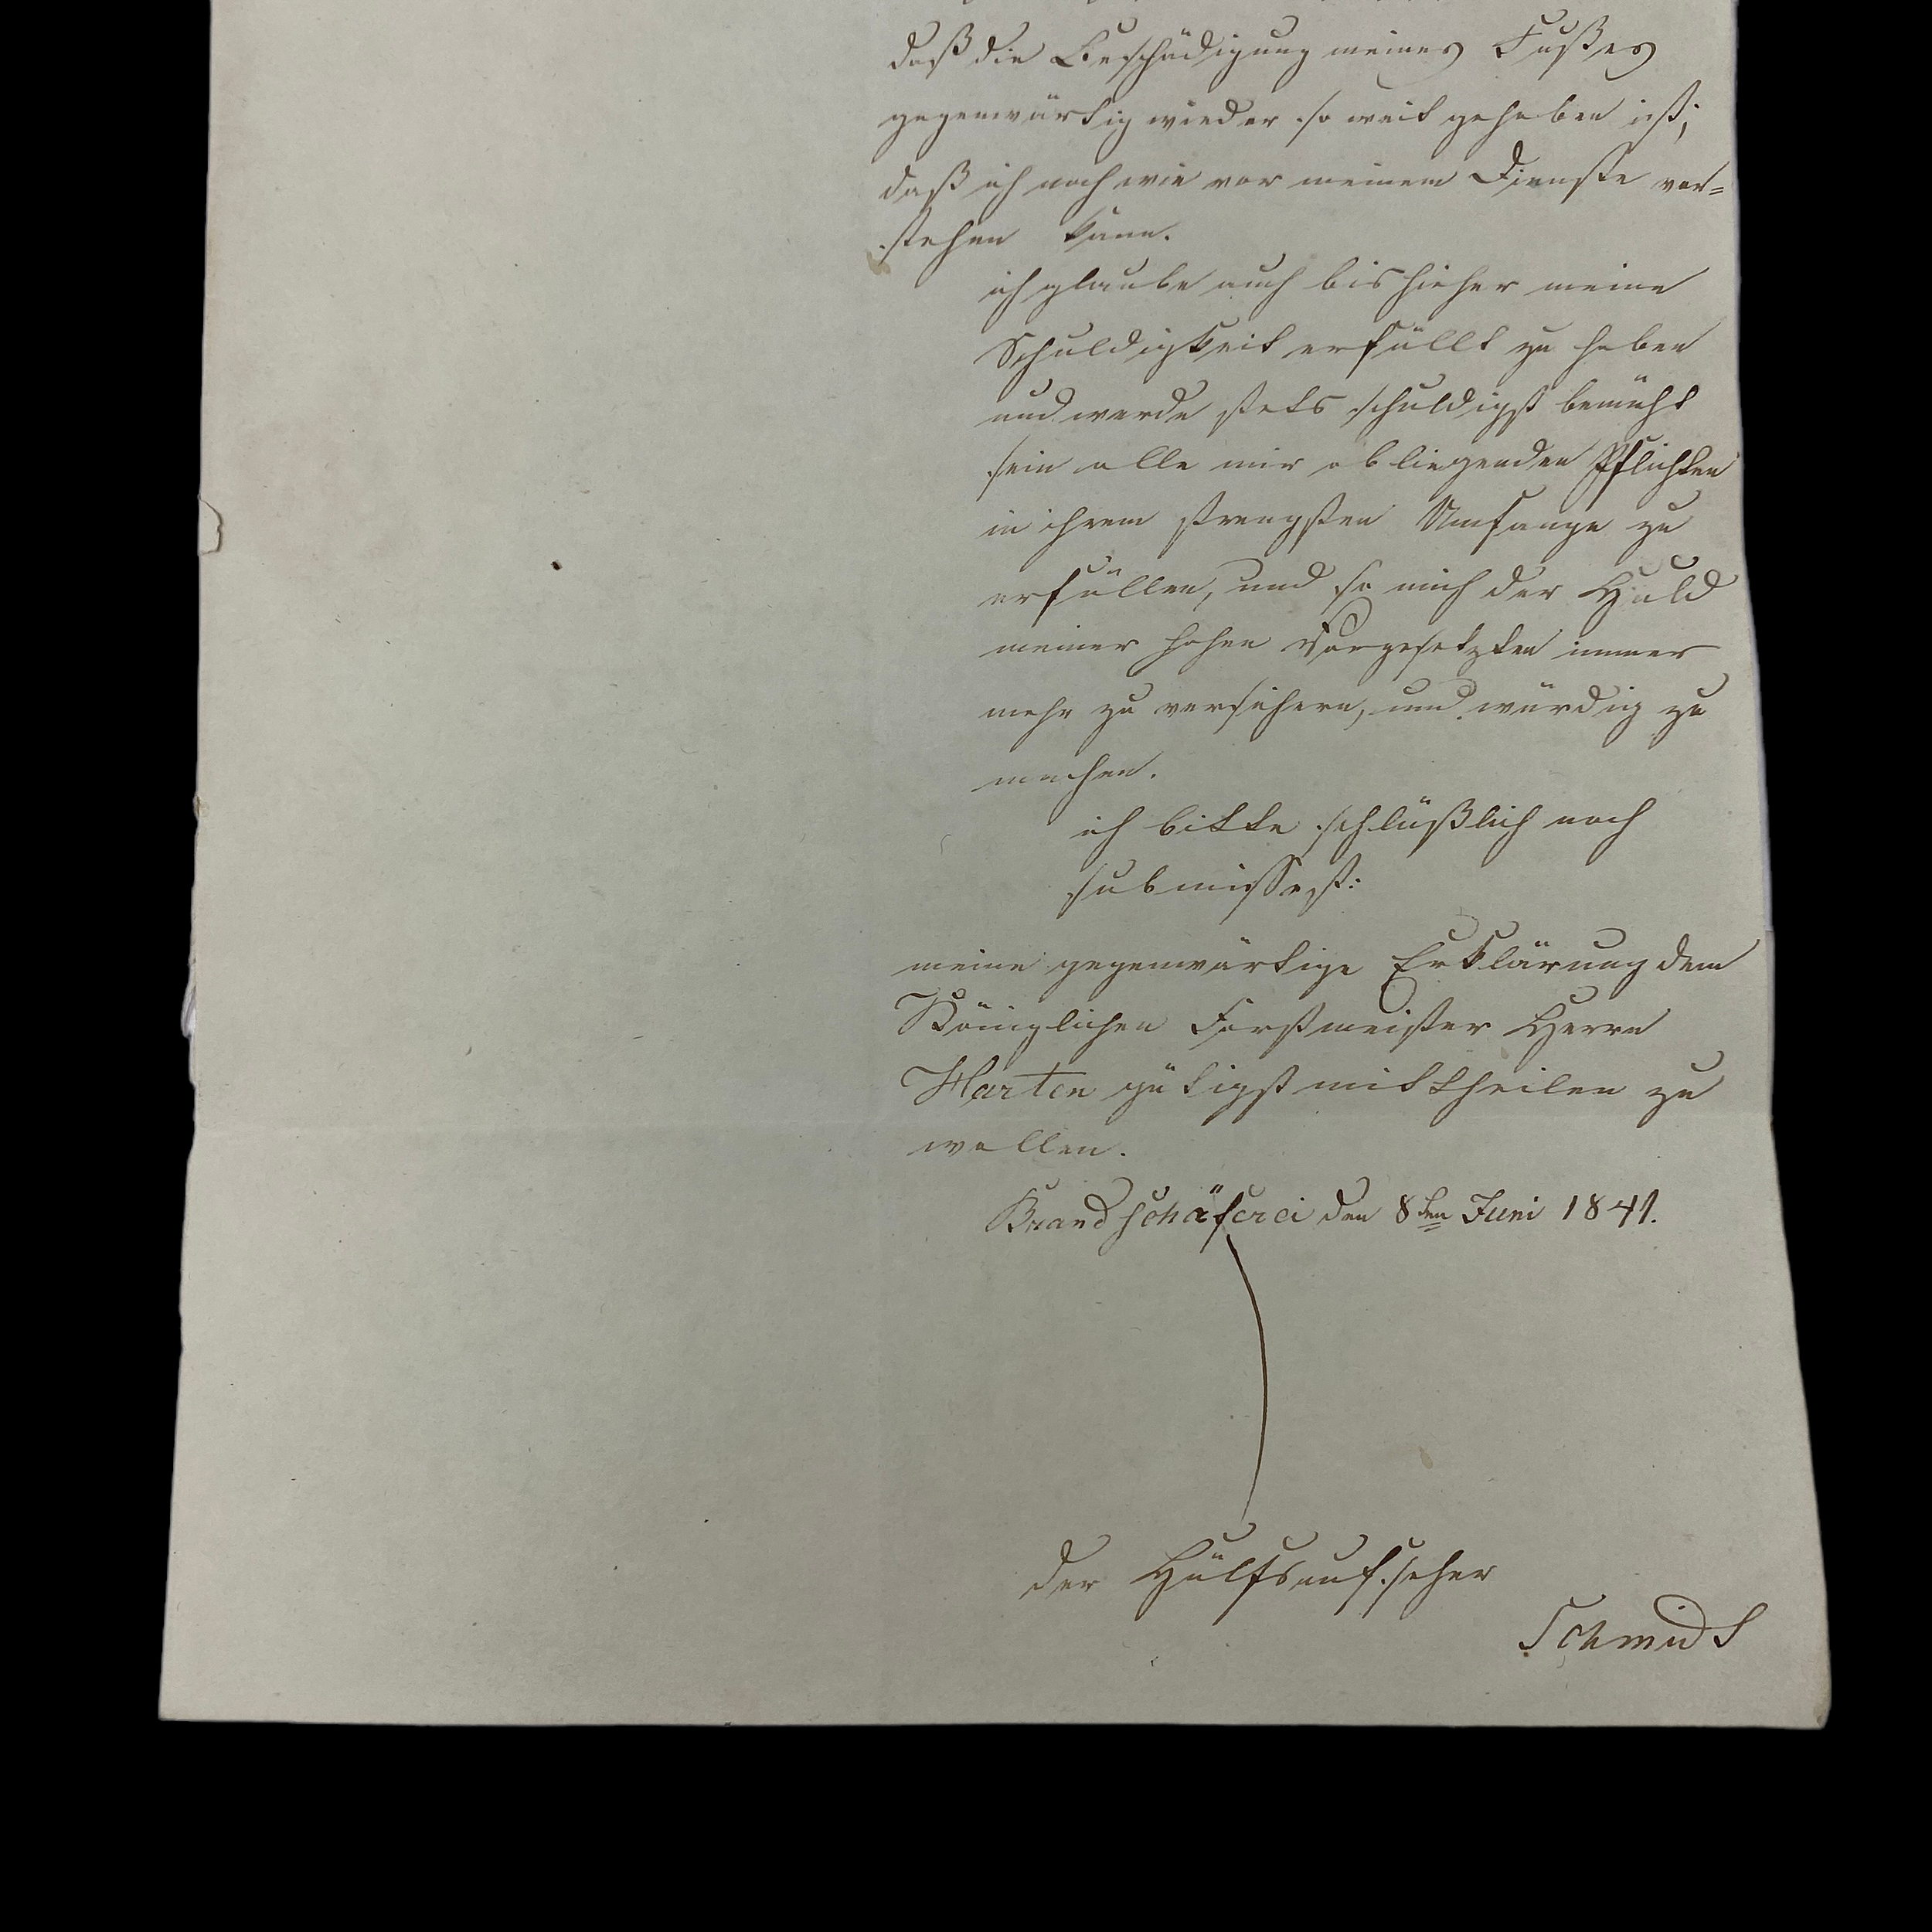 daß die Beschädigung meines Fußes
gegenwärtig wieder so weit gehoben ist,
daß ich nach wie vor meinem Dienste vor=
stehen kann.
ich glaube auch bis hieher meine
Schuldigkeit erfüllt zu haben
und werde stets schuldigst bemüht
sein alle mir obliegenden Pflichten
in ihrem strengsten Umfange zu
erfüllen, und so mich der Huld
meiner hohen Vorgesetzten immer
mehr zu versichern, und würdig zu
machen.
ich bitte schlüßlich noch
submissest:
meine gegenwärtige Erklärung dem
Königlichen Forstmeister Herrn
Harten gütigst mittheilen zu
wollen.
Brandschäferei den 8ten Juni 1841.
der Hülfsaufseher
Schmidt